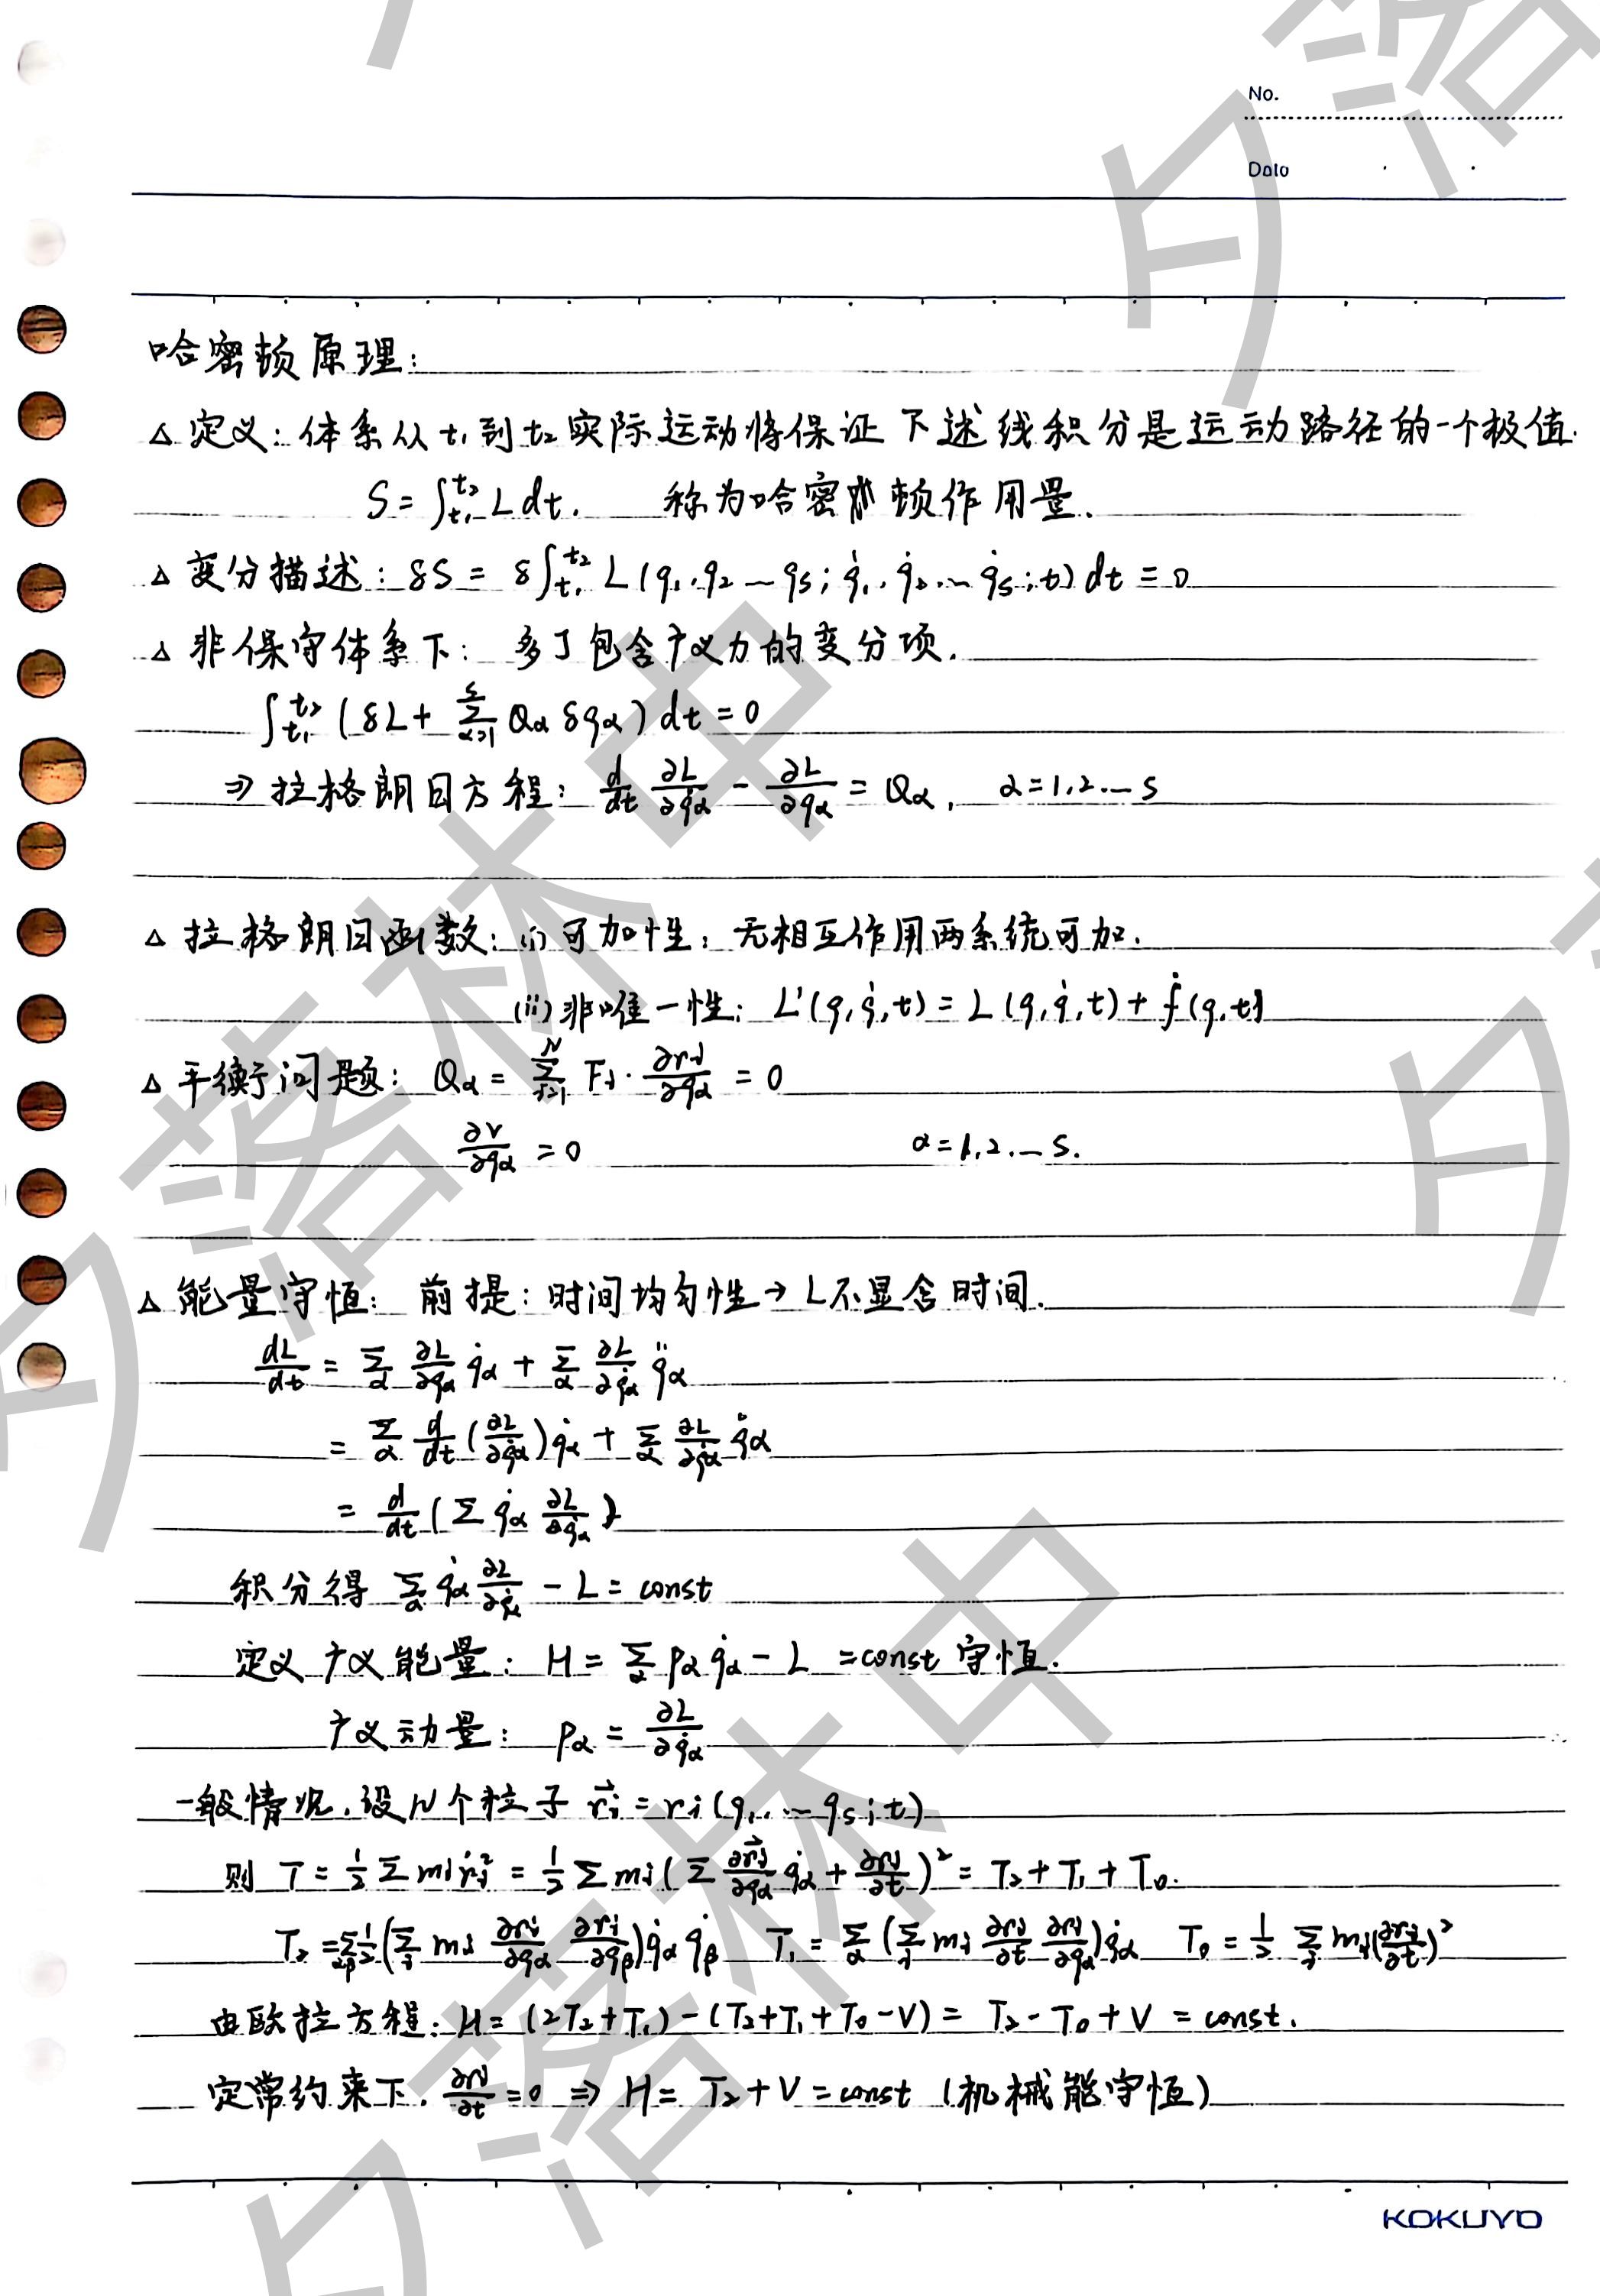 No.
Date
哈密顿原理:
△ 定义: 体系从 t₁ 到 t₂ 实际运动将保证下述线积分是运动路径的一个极值.
S = ∫_{t₁}^{t₂} L dt. 称为哈密顿作用量.
△ 变分描述: δS = δ∫_{t₁}^{t₂} L(q₁,q₂ … q_s; q̇₁, q̇₂, … q̇_s; t) dt = 0
△ 非保守体系下: 多了包含广义力的变分项.
∫_{t₁}^{t₂} (δL + Σ_{α=1}^{s} Q_α δq_α) dt = 0
⇒ 拉格朗日方程: d/dt ∂L/∂q̇_α - ∂L/∂q_α = Q_α, α = 1,2 … s
△ 拉格朗日函数: (i) 可加性: 无相互作用两系统可加.
(ii) 非唯一性: L'(q,q̇,t) = L(q,q̇,t) + ḟ(q,t)
△ 平衡问题: Q_α = Σ_{j=1}^{N} F_j · ∂r_j/∂q_α = 0
∂V/∂q_α = 0 α = 1,2,… s.
△ 能量守恒: 前提: 时间均匀性 → L不显含时间.
dL/dt = Σ_α ∂L/∂q_α q̇_α + Σ_α ∂L/∂q̇_α q̈_α
= Σ_α d/dt (∂L/∂q̇_α) q̇_α + Σ_α ∂L/∂q̇_α q̈_α
= d/dt (Σ q̇_α ∂L/∂q̇_α)
积分得 Σ_α q̇_α ∂L/∂q̇_α - L = const
定义广义能量: H = Σ_α p_α q̇_α - L = const 守恒.
广义动量: p_α = ∂L/∂q̇_α
一般情况, 设N个粒子 r⃗_i = r_i(q₁, … q_s; t)
则 T = ½ Σ m_j ṙ_j² = ½ Σ m_j (Σ ∂r⃗_j/∂q_α q̇_α + ∂r_j/∂t)² = T₂ + T₁ + T₀.
T₂ = Σ_{αβ} ½ (Σ_j m_j ∂r_j/∂q_α ∂r_j/∂q_β) q̇_α q̇_β T₁ = Σ_α (Σ_j m_j ∂r_j/∂t ∂r_j/∂q_α) q̇_α T₀ = ½ Σ_j m_j (∂r_j/∂t)²
由欧拉方程: H = (2T₂ + T₁) - (T₂ + T₁ + T₀ - V) = T₂ - T₀ + V = const.
定常约束下, ∂r_j/∂t = 0 ⇒ H = T₂ + V = const (机械能守恒)
KOKUYO
夕落林中
夕落林中
夕落
夕